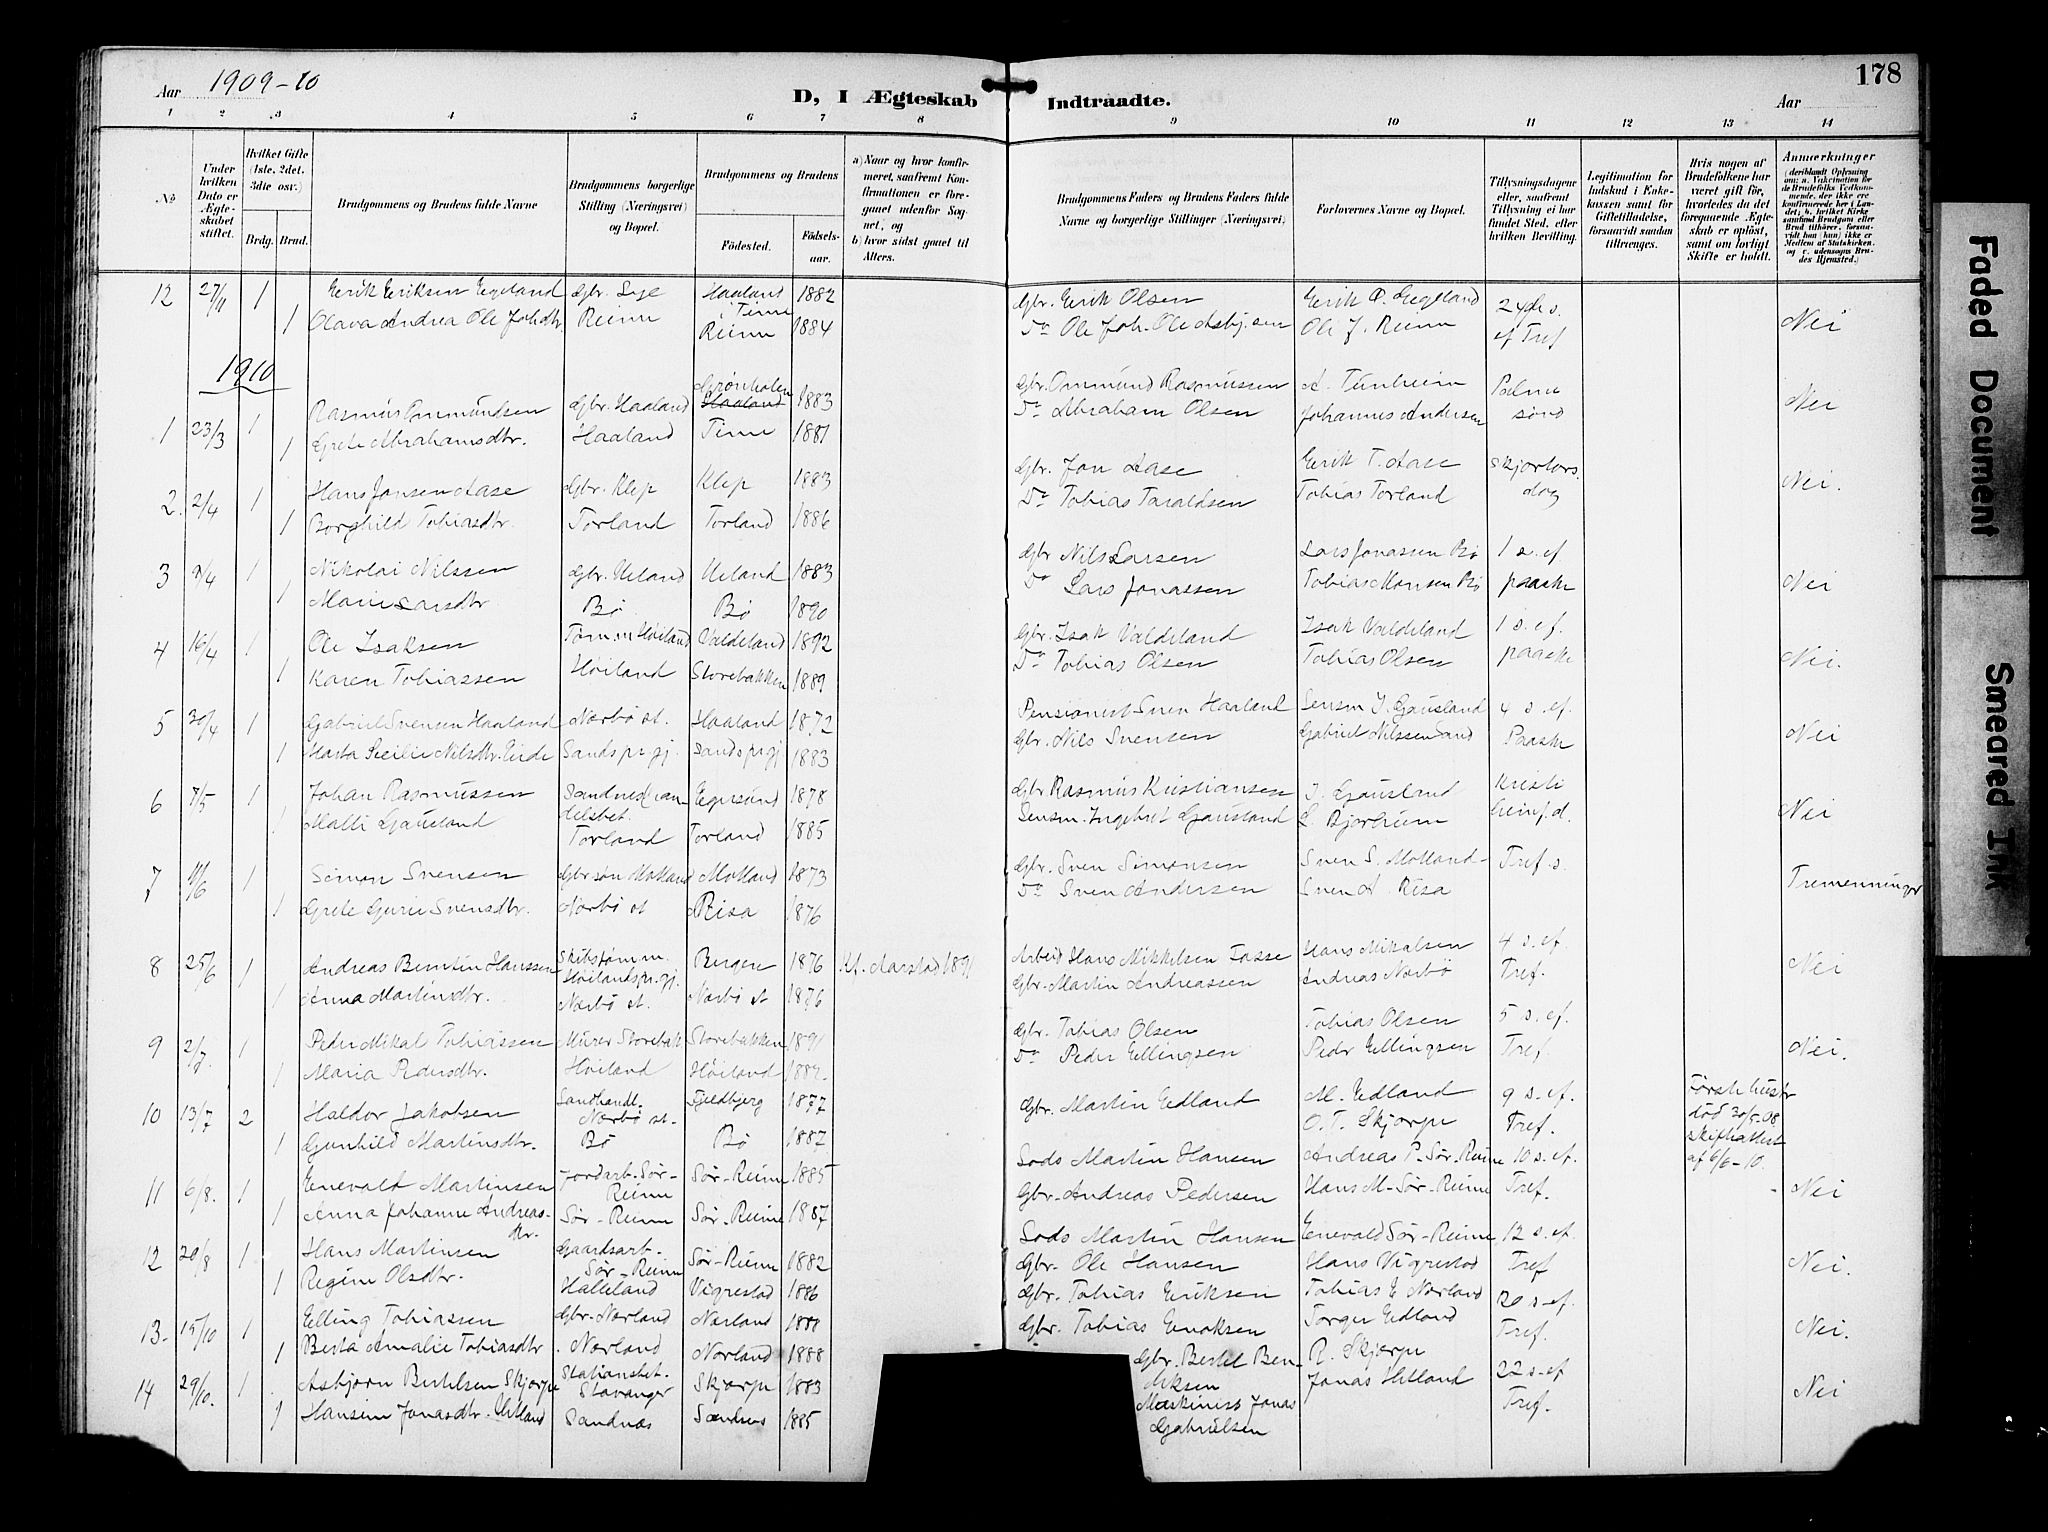 Aar 1909-10
D, I Ægteskab Indtraadte.
Aar
178
1 2 3 4 5 6 7 8 9 10 11 12 13 14
No
Under hvilken Dato er Ægteskabet stiftet.
Hvilket Gifte (1ste, 2det, 3die osv.)
Brdg. Brud.
Brudgommens og Brudens fulde Navne
Brudgommens borgerlige Stilling (Næringsvei) og Bopæl.
Brudgommens og Brudens
Fødested.
Fødselsaar.
a) Naar og hvor konfirmeret, saafremt Konfirmationen er foregaaet udenfor Sognet, og
b) hvor sidst gaaet til Alters.
Brudgommens Faders og Brudens Faders fulde Navne og borgerlige Stillinger (Næringsvei).
Forlovernes Navne og Bopæl.
Tillysningsdagene eller, saafremt Tillysning ei har fundet Sted, efter hvilken Bevilling.
Legitimation for Indskud i Enkekassen samt for Giftetilladelse, forsaavidt saadan tiltrænges.
Hvis nogen af Brudefolkene har været gift før, hvorledes da det foregaaende Ægteskab er opløst, samt om lovligt Skifte er holdt.
Anmærkninger
12 27/11 1 Eerik Eeriksen Egeland Gbr. Lye Haaland i Time 1882 Gbr. Eerik Olsen Eerik O. Egeland 24de s. Nei
1 Olava Andrea Ole Johdtr. Reime Reime 1884 Do Ole Joh. Ole Asbj.sen Ole J. Reime ef Tref
1910
1 23/3 1 Rasmus Ommundsen Gbr. Haaland Grønholen Haaland 1883 Gbr. Ommund Rasmussen A. Tunheim Palme Nei
1 Grete Abrahamsdtr. Haaland Time 1881 Do Abraham Olsen Johannes Andersen sønd
2. 2/4 1 Hans Jonsen Aase Gbr. Klep Klep 1883 Gbr. Jon Aase Eerik T. Aase Skjærtors. Nei.
1 Borghild Tobiasdtr. Torland Torland 1886 Do Tobias Taraldsen Tobias Torland dag
3 9/4 1 Nikolai Nilssen Gbr. Ueland Ueland 1883 Gbr Nils Larsen Lars Jonassen Bø 1 s. ef Nei
1 Marie Larsdtr Bø Bø 1890 Do Lars Jonassen Tobias Hansen Bø paaske
4 16/4 1 Ole Isaksen Tømm Høiland Valdeland 1892 Gbr. Isak Valdeland Isak Valdeland 1 s. ef. Nei.
1 Karen Tobiassen Høiland Storebakken 1889 Do Tobias Olsen Tobias Olsen paaske
5 30/4 1 Gabriel Svensen Haaland Nærbø st. Haaland 1872 Pensionist Sven Haaland Lensm I. Gausland 4 s. ef. Nei
1 Marta Secilie Nilsdtr. Eide Sands pr.gj. Sands prgj 1883 Gbr. Nils Svensen Gabriel Nilssen Paaske
6 7/5 1 Johan Rasmussen Sandnes handelsbet. Egersund 1878 Gbr Rasmus Kristiansen I. Gausland Kristi Nei
1 Malli Gausland Torland Torland 1885 Lensm. Ingebret Gausland L. Bjorheim himf. d.
7 11/6 1 Simon Svensen Gbr søn Motland Motland 1873 Gbr. Sven Simonsen Sven S. Motland Tref s. Tremenninger
1 Grete Gurie Svensdtr. Nærbø st Risa 1876 Do Sven Andersen Sven A. Risa
8 25/6 1 Andreas Berntin Hanssen Skibstømm. Høilandspr.gj. Bergen 1876 Kf. Aarstad 1891 Arbeid Hans Mikkelsen Fosse Hans Mikalsen 4 s. ef. Nei
1 Anna Martinsdtr. Nærbø st. Nærbø st 1876 Gbr. Martin Andreassen Andreas Nærbø Tref.
9 2/7. 1 Peder Mikal Tobiassen Murer Storebak. Storebakken 1891 Gbr. Tobias Olsen Tobias Olsen 5 s. ef. Nei.
1 Maria Pedersdtr. Høiland Høiland 1882 Do Peder Ellingsen Peder Ellingsen Tref.
10 13/7 2 Haldor Jakobsen Landhandl. Nærbø st. Fjeldbjerg 1877 Gbr. Martin Edland M. Edland 9 s. ef. Første hustr død 30/5-08. skifteattest af 6/6-10.
1 Gunhild Martinsdtr. Bø Bø 1887 O. T. Skjærpe Tref.
11 6/8. 1 Enevald Martinsen Jordarb. Sør-Reime Sør-Reime 1885 Lods Martin Hansen Andreas P. Sør-Reime 10 s. ef. Nei
1 Anna Johanne Andreasdtr. Sør-Reime Sør-Reime 1887 Gbr. Andreas Pedersen Hans M. Sør-Reime Tref.
12 20/8 1 Hans Martinsen Gaardsarb. Sør-Reime Sør-Reime 1882 Lods Martin Hansen Enevald Sør-Reime 12 s. ef. Nei.
1 Regine Olsdtr. Halleland Vigrestad 1886 Gbr. Ole Hansen Hans Vigrestad Tref
13. 15/10 1 Elling Tobiassen Gbr. Norland Norland 1888 Gbr. Tobias Eeriksen Tobias E Norland 20 s. ef. Nei.
1 Berta Amalie Tobiasdtr Norland Norland 1888 Gbr. Tobias Enoksen Torger Edland Tref.
14 29/10. 1 Asbjørn Bertelsen Skjærpe Stationsbet. Stavanger Skjærpe 1883 Gbr. Bertel Bendiksen R. Skjærpe 22 s. ef Nei
1 Hansine Jonasdtr. Hetland Sandnæs Sandnes 1885 Maskinist Jonas Gabrielsen Jonas Hetland Tref.
Faded Document
Smeared Ink